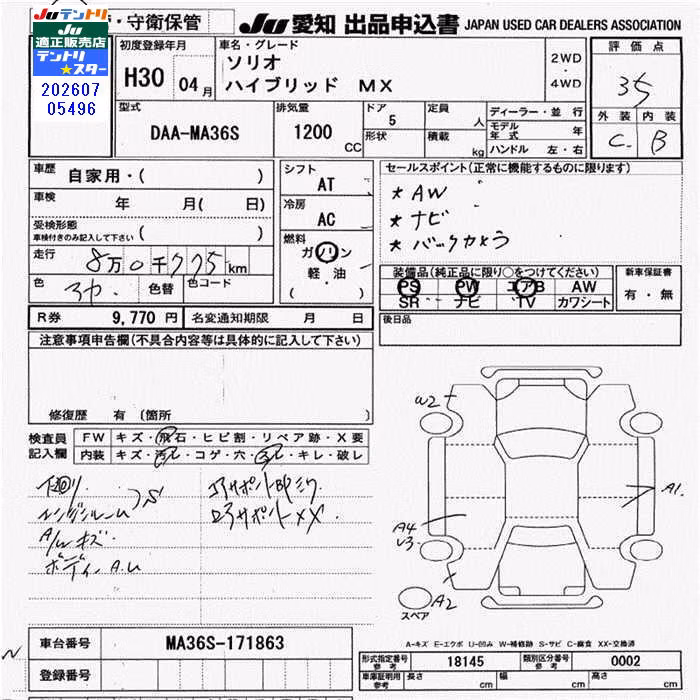 JU テントリ
JU
適正販売店
テントリ
★スター
202607
05496
・守衛保管
JU 愛知 出品申込書 JAPAN USED CAR DEALERS ASSOCIATION
初度登録年月
H30 04月
車名・グレード
ソリオ
ハイブリッド MX
2WD
・
4WD
評価点
3.5
外装 内装
C B
型式
DAA-MA36S
排気量
1200 CC
ドア
5
形状
定員 人
積載 kg
ディーラー・並行
モデル年式 年
ハンドル 左・右
車歴 自家用・( )
車検 年 月( 日)
受検形態
車検付きのみ記入して下さい ( )
走行 8万0千775km
色 色替 色コード
シフト
AT
冷房
AC
燃料
ガソリン
軽・油
( )
セールスポイント(正常に機能するものに限ります)
★AW
★ナビ
★バックカメラ
装備品(純正品に限り○をつけてください)
PS PW エアB AW
SR ナビ TV カワシート
新車保証書
有・無
R券 9,770円 名変通知期限 月 日
後日品
注意事項申告欄(不具合内容等は具体的に記入して下さい)
修復歴 有 (箇所 )
検査員
記入欄
FW キズ・飛石・ヒビ割・リペア跡・X要
内装 キズ・汚レ・コゲ・穴・スレ・キレ・破レ
下回り
エンジンルーム
S
A/Wキズ
ボディーA.U
コアサポートBPミク
ロアサポートXX
W2
A1.
A4
U3
A2
スペア
A-キズ E-エクボ U-凹み W-補修跡 S-サビ C-腐食 XX-交換済
車台番号 MA36S-171863
登録番号
N
形式指定番号
参考
18145
類別区分番号
参考
0002
車庫証明用
参考
長さ cm 幅 cm 高さ cm